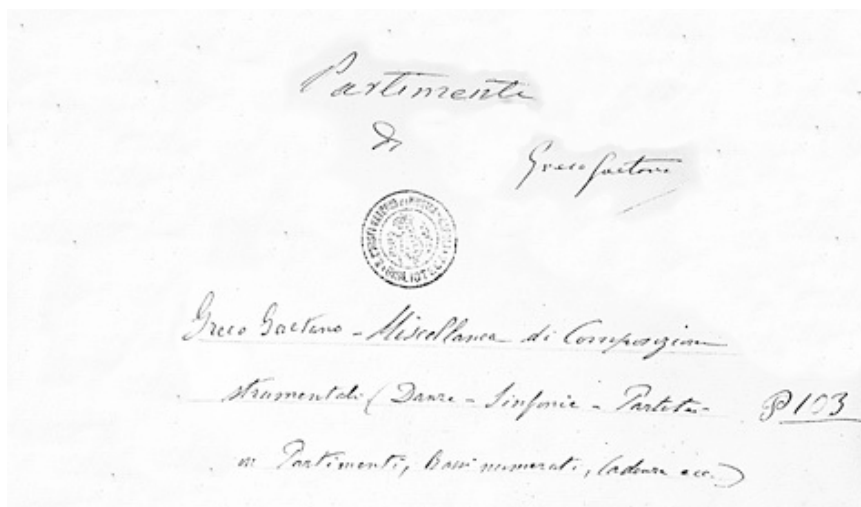 Partimenti
di
Greco Gaetano
BIBLIOTECA
Greco Gaetano - Miscellanea di Composizioni
strumentali (Danze - Sinfonie - Partite -
P 103
in Partimenti, Bassi numerati, Cadenze ecc.)